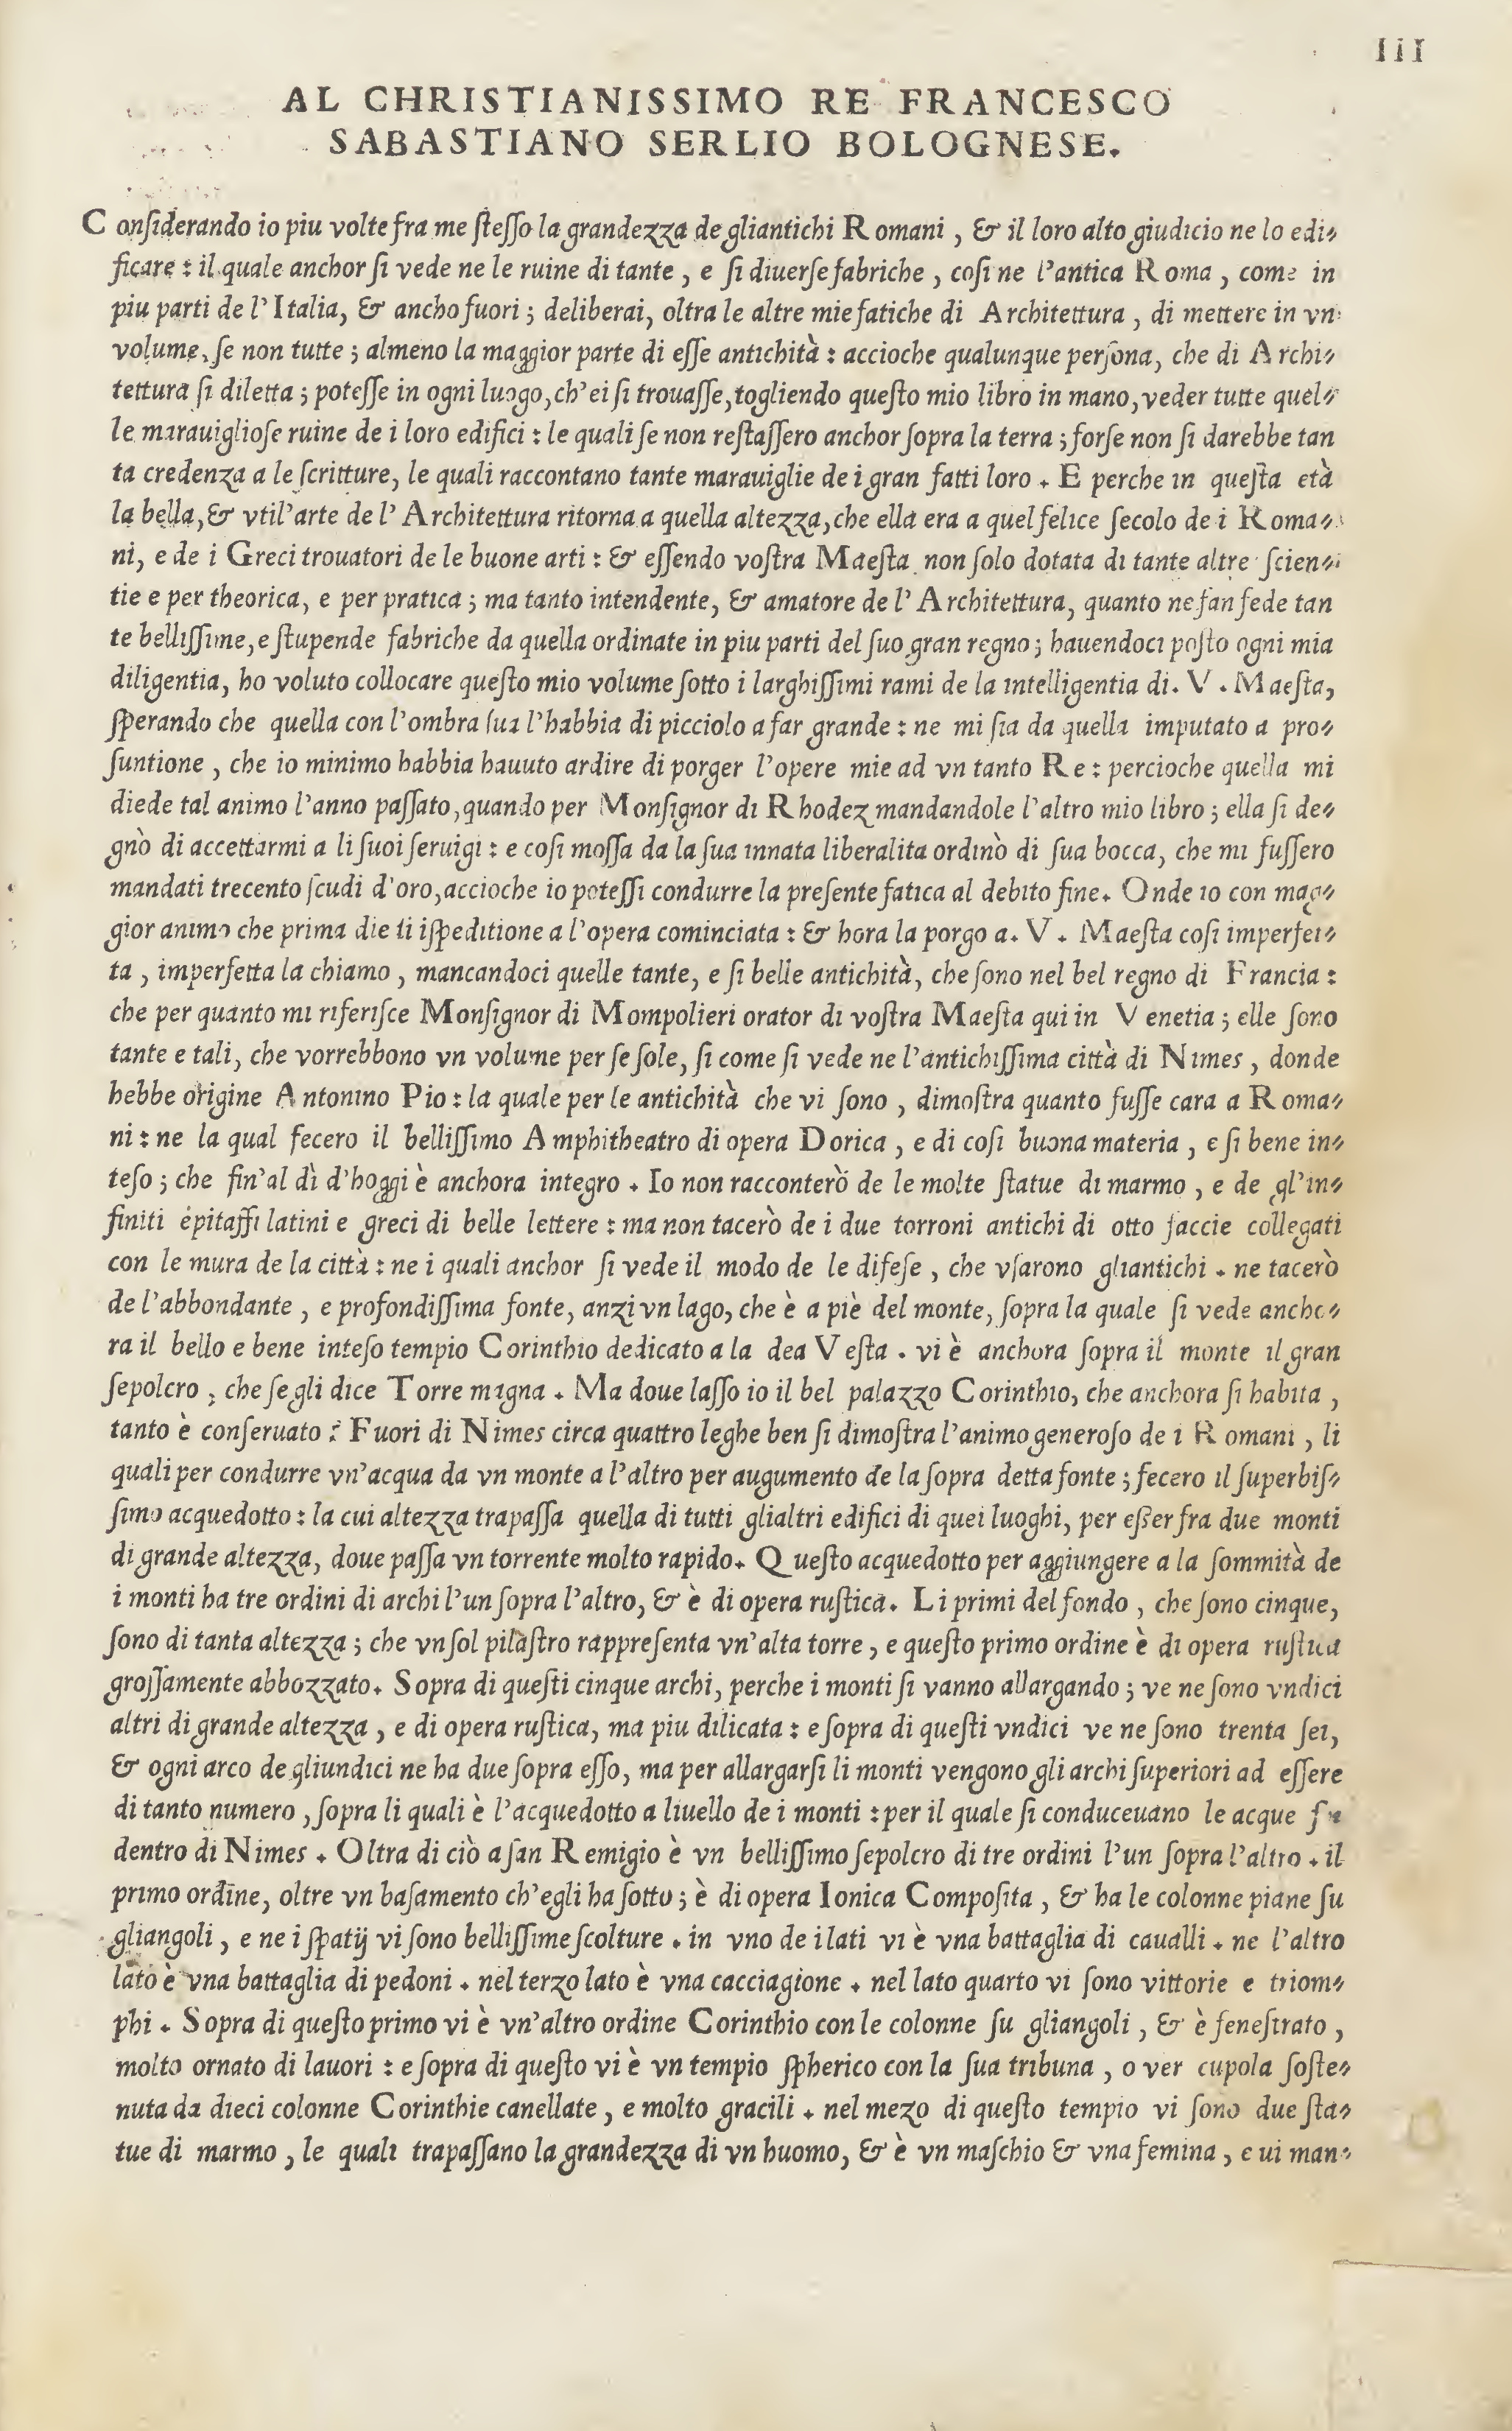 III
AL CHRISTIANISSIMO RE FRANCESCO
SABASTIANO SERLIO BOLOGNESE.
Conſiderando io piu volte fra me ſteſſo la grandezza de gliantichi Romani, & il loro alto giudicio ne lo edi-
ficare: il quale anchor ſi vede ne le ruine di tante, e ſi diuerſe fabriche, coſi ne l'antica Roma, come in
piu parti de l'Italia, & ancho fuori; deliberai, oltra le altre mie fatiche di Architettura, di mettere in vn
volume, ſe non tutte; almeno la maggior parte di eſſe antichità: accioche qualunque perſona, che di Archi-
tettura ſi diletta; poteſſe in ogni luogo, ch'ei ſi trouaſſe, togliendo queſto mio libro in mano, veder tutte quel-
le marauiglioſe ruine de i loro edifici: le quali ſe non reſtaſſero anchor ſopra la terra; forſe non ſi darebbe tan
ta credenza a le ſcritture, le quali raccontano tante marauiglie de i gran fatti loro. E perche in queſta età
la bella, & vtil'arte de l'Architettura ritorna a quella altezza, che ella era a quel felice ſecolo de i Roma-
ni, e de i Greci trouatori de le buone arti: & eſſendo voſtra Maeſta non ſolo dotata di tante altre ſcien-
tie e per theorica, e per pratica; ma tanto intendente, & amatore de l'Architettura, quanto ne fan fede tan
te belliſſime, e ſtupende fabriche da quella ordinate in piu parti del ſuo gran regno; hauendoci poſto ogni mia
diligentia, ho voluto collocare queſto mio volume ſotto i larghiſſimi rami de la intelligentia di. V. Maeſta,
ſperando che quella con l'ombra ſua l'habbia di picciolo a far grande: ne mi ſia da quella imputato a pro-
ſuntione, che io minimo habbia hauuto ardire di porger l'opere mie ad vn tanto Re: percioche quella mi
diede tal animo l'anno paſſato, quando per Monſignor di Rhodez mandandole l'altro mio libro; ella ſi de-
gnò di accettarmi a li ſuoi ſeruigi: e coſi moſſa da la ſua innata liberalita ordinò di ſua bocca, che mi fuſſero
mandati trecento ſcudi d'oro, accioche io poteſſi condurre la preſente fatica al debito fine. Onde io con mag-
gior animo che prima diedi iſpeditione a l'opera cominciata: & hora la porgo a. V. Maeſta coſi imperfet-
ta, imperfetta la chiamo, mancandoci quelle tante, e ſi belle antichità, che ſono nel bel regno di Francia:
che per quanto mi riferiſce Monſignor di Mompolieri orator di voſtra Maeſta qui in Venetia; elle ſono
tante e tali, che vorrebbono vn volume per ſe ſole, ſi come ſi vede ne l'antichiſſima città di Nimes, donde
hebbe origine Antonino Pio: la quale per le antichità che vi ſono, dimoſtra quanto fuſſe cara a Roma-
ni: ne la qual fecero il belliſſimo Amphitheatro di opera Dorica, e di coſi buona materia, e ſi bene in-
teſo; che fin'al dì d'hoggi è anchora integro. Io non racconterò de le molte ſtatue di marmo, e de gl'in-
finiti epitaffi latini e greci di belle lettere: ma non tacerò de i due torroni antichi di otto faccie collegati
con le mura de la città: ne i quali anchor ſi vede il modo de le difeſe, che vſarono gliantichi. ne tacerò
de l'abbondante, e profondiſſima fonte, anzi vn lago, che è a piè del monte, ſopra la quale ſi vede ancho-
ra il bello e bene inteſo tempio Corinthio dedicato a la dea Veſta. vi è anchora ſopra il monte il gran
ſepolcro, che ſe gli dice Torre magna. Ma doue laſſo io il bel palazzo Corinthio, che anchora ſi habita,
tanto è conſeruato? Fuori di Nimes circa quattro leghe ben ſi dimoſtra l'animo generoſo de i Romani, li
quali per condurre vn'acqua da vn monte a l'altro per augumento de la ſopra detta fonte; fecero il ſuperbiſ-
ſimo acquedotto: la cui altezza trapaſſa quella di tutti glialtri edifici di quei luoghi, per eſſer fra due monti
di grande altezza, doue paſſa vn torrente molto rapido. Queſto acquedotto per aggiungere a la ſommità de
i monti ha tre ordini di archi l'un ſopra l'altro, & è di opera ruſtica. Li primi del fondo, che ſono cinque,
ſono di tanta altezza; che vn ſol pilaſtro rappreſenta vn'alta torre, e queſto primo ordine è di opera ruſtica
groſſamente abbozzato. Sopra di queſti cinque archi, perche i monti ſi vanno allargando; ve ne ſono vndici
altri di grande altezza, e di opera ruſtica, ma piu dilicata: e ſopra di queſti vndici ve ne ſono trenta ſei,
& ogni arco de gliundici ne ha due ſopra eſſo, ma per allargarſi li monti vengono gli archi ſuperiori ad eſſere
di tanto numero, ſopra li quali è l'acquedotto a liuello de i monti: per il quale ſi conduceuano le acque
dentro di Nimes. Oltra di ciò a ſan Remigio è vn belliſſimo ſepolcro di tre ordini l'un ſopra l'altro. il
primo ordine, oltre vn baſamento ch'egli ha ſotto; è di opera Ionica Compoſita, & ha le colonne piane ſu
gliangoli, e ne i ſpatij vi ſono belliſſime ſcolture. in vno de i lati vi è vna battaglia di caualli. ne l'altro
lato è vna battaglia di pedoni. nel terzo lato è vna cacciagione. nel lato quarto vi ſono vittorie e triom-
phi. Sopra di queſto primo vi è vn'altro ordine Corinthio con le colonne ſu gliangoli, & è feneſtrato,
molto ornato di lauori: e ſopra di queſto vi è vn tempio ſpherico con la ſua tribuna, o ver cupola ſoſte-
nuta da dieci colonne Corinthie canellate, e molto gracili. nel mezo di queſto tempio vi ſono due ſta-
tue di marmo, le quali trapaſſano la grandezza di vn huomo, & è vn maſchio & vna femina, e ui man-